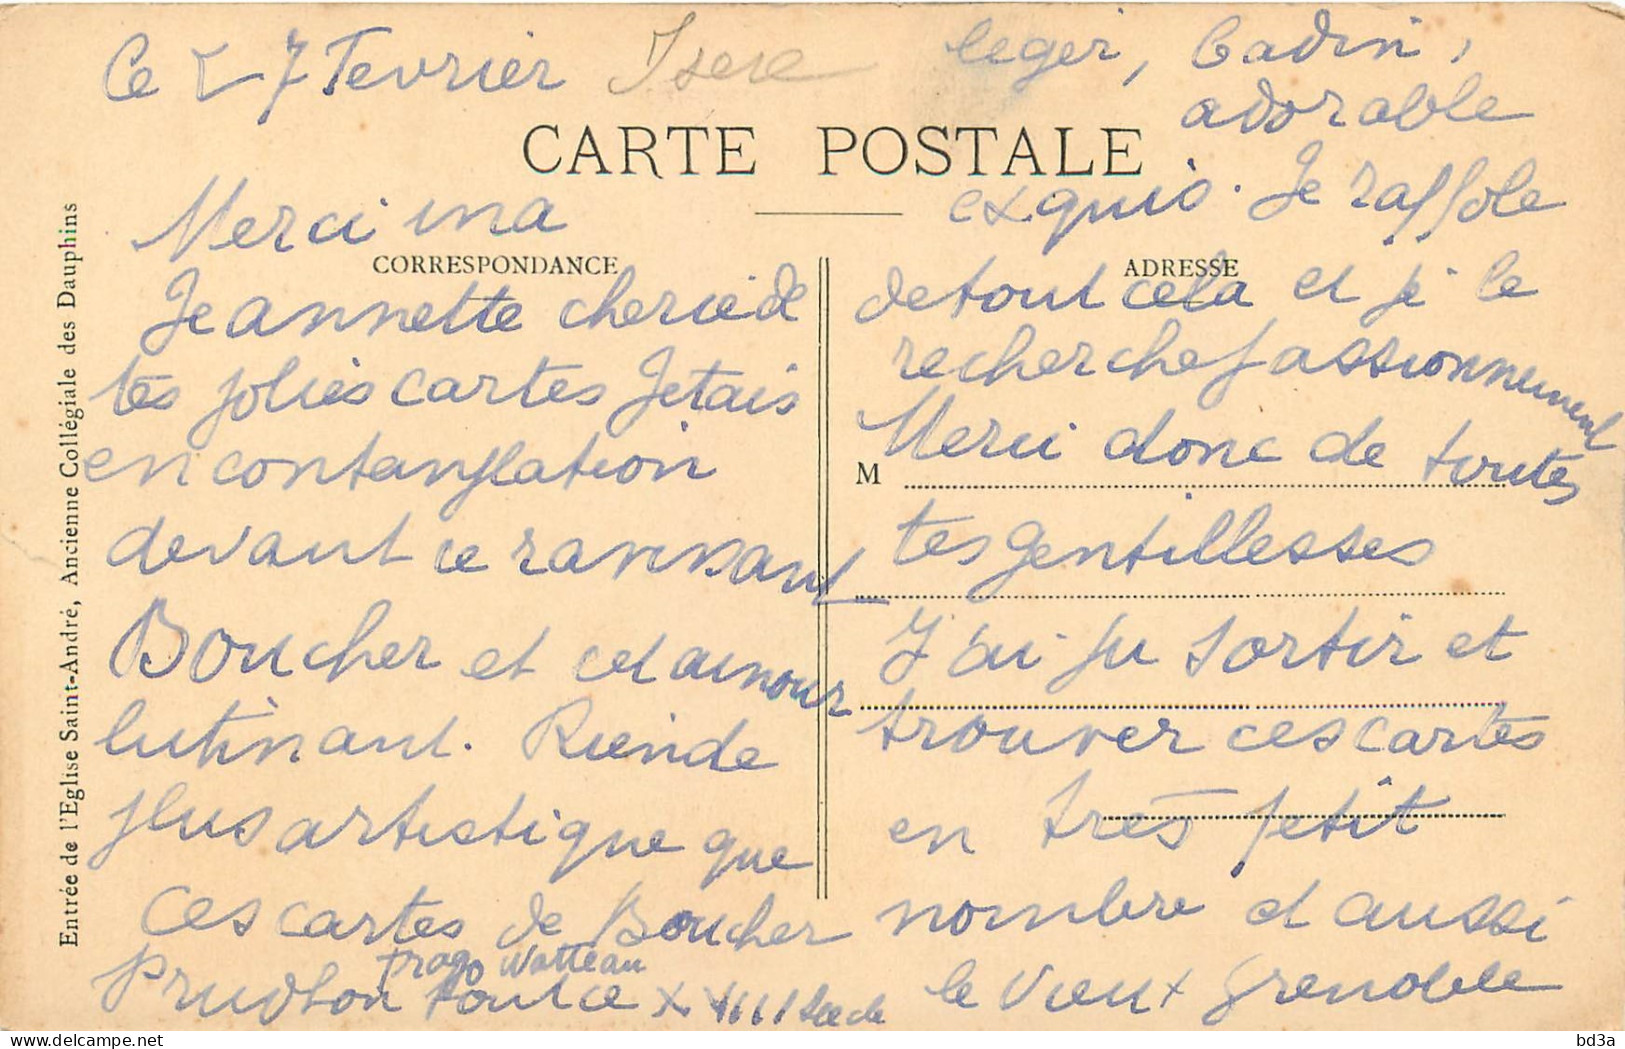 Ce 27 Fevrier
Isere
CARTE POSTALE
CORRESPONDANCE
Merci ma
Jeannette cherie de
tes jolies cartes Jetais
en contanplation
devant ce ravissant
Boucher et cet amour
lutinant. Rien de
plus artistique que
ces cartes de Boucher
Prudhon frago Watteau
tout ce XVIII Siecle
leger, badin,
adorable
exquis. Je raffole
ADRESSE
de tout cela et je le
recherche passionnement
M
Merci donc de toutes
tes gentillesses
J'ai pu sortir et
trouver ces cartes
en très petit
nombre et aussi
le vieux grenoble
Entrée de l'Eglise Saint-André, Ancienne Collégiale des Dauphins
bd3a